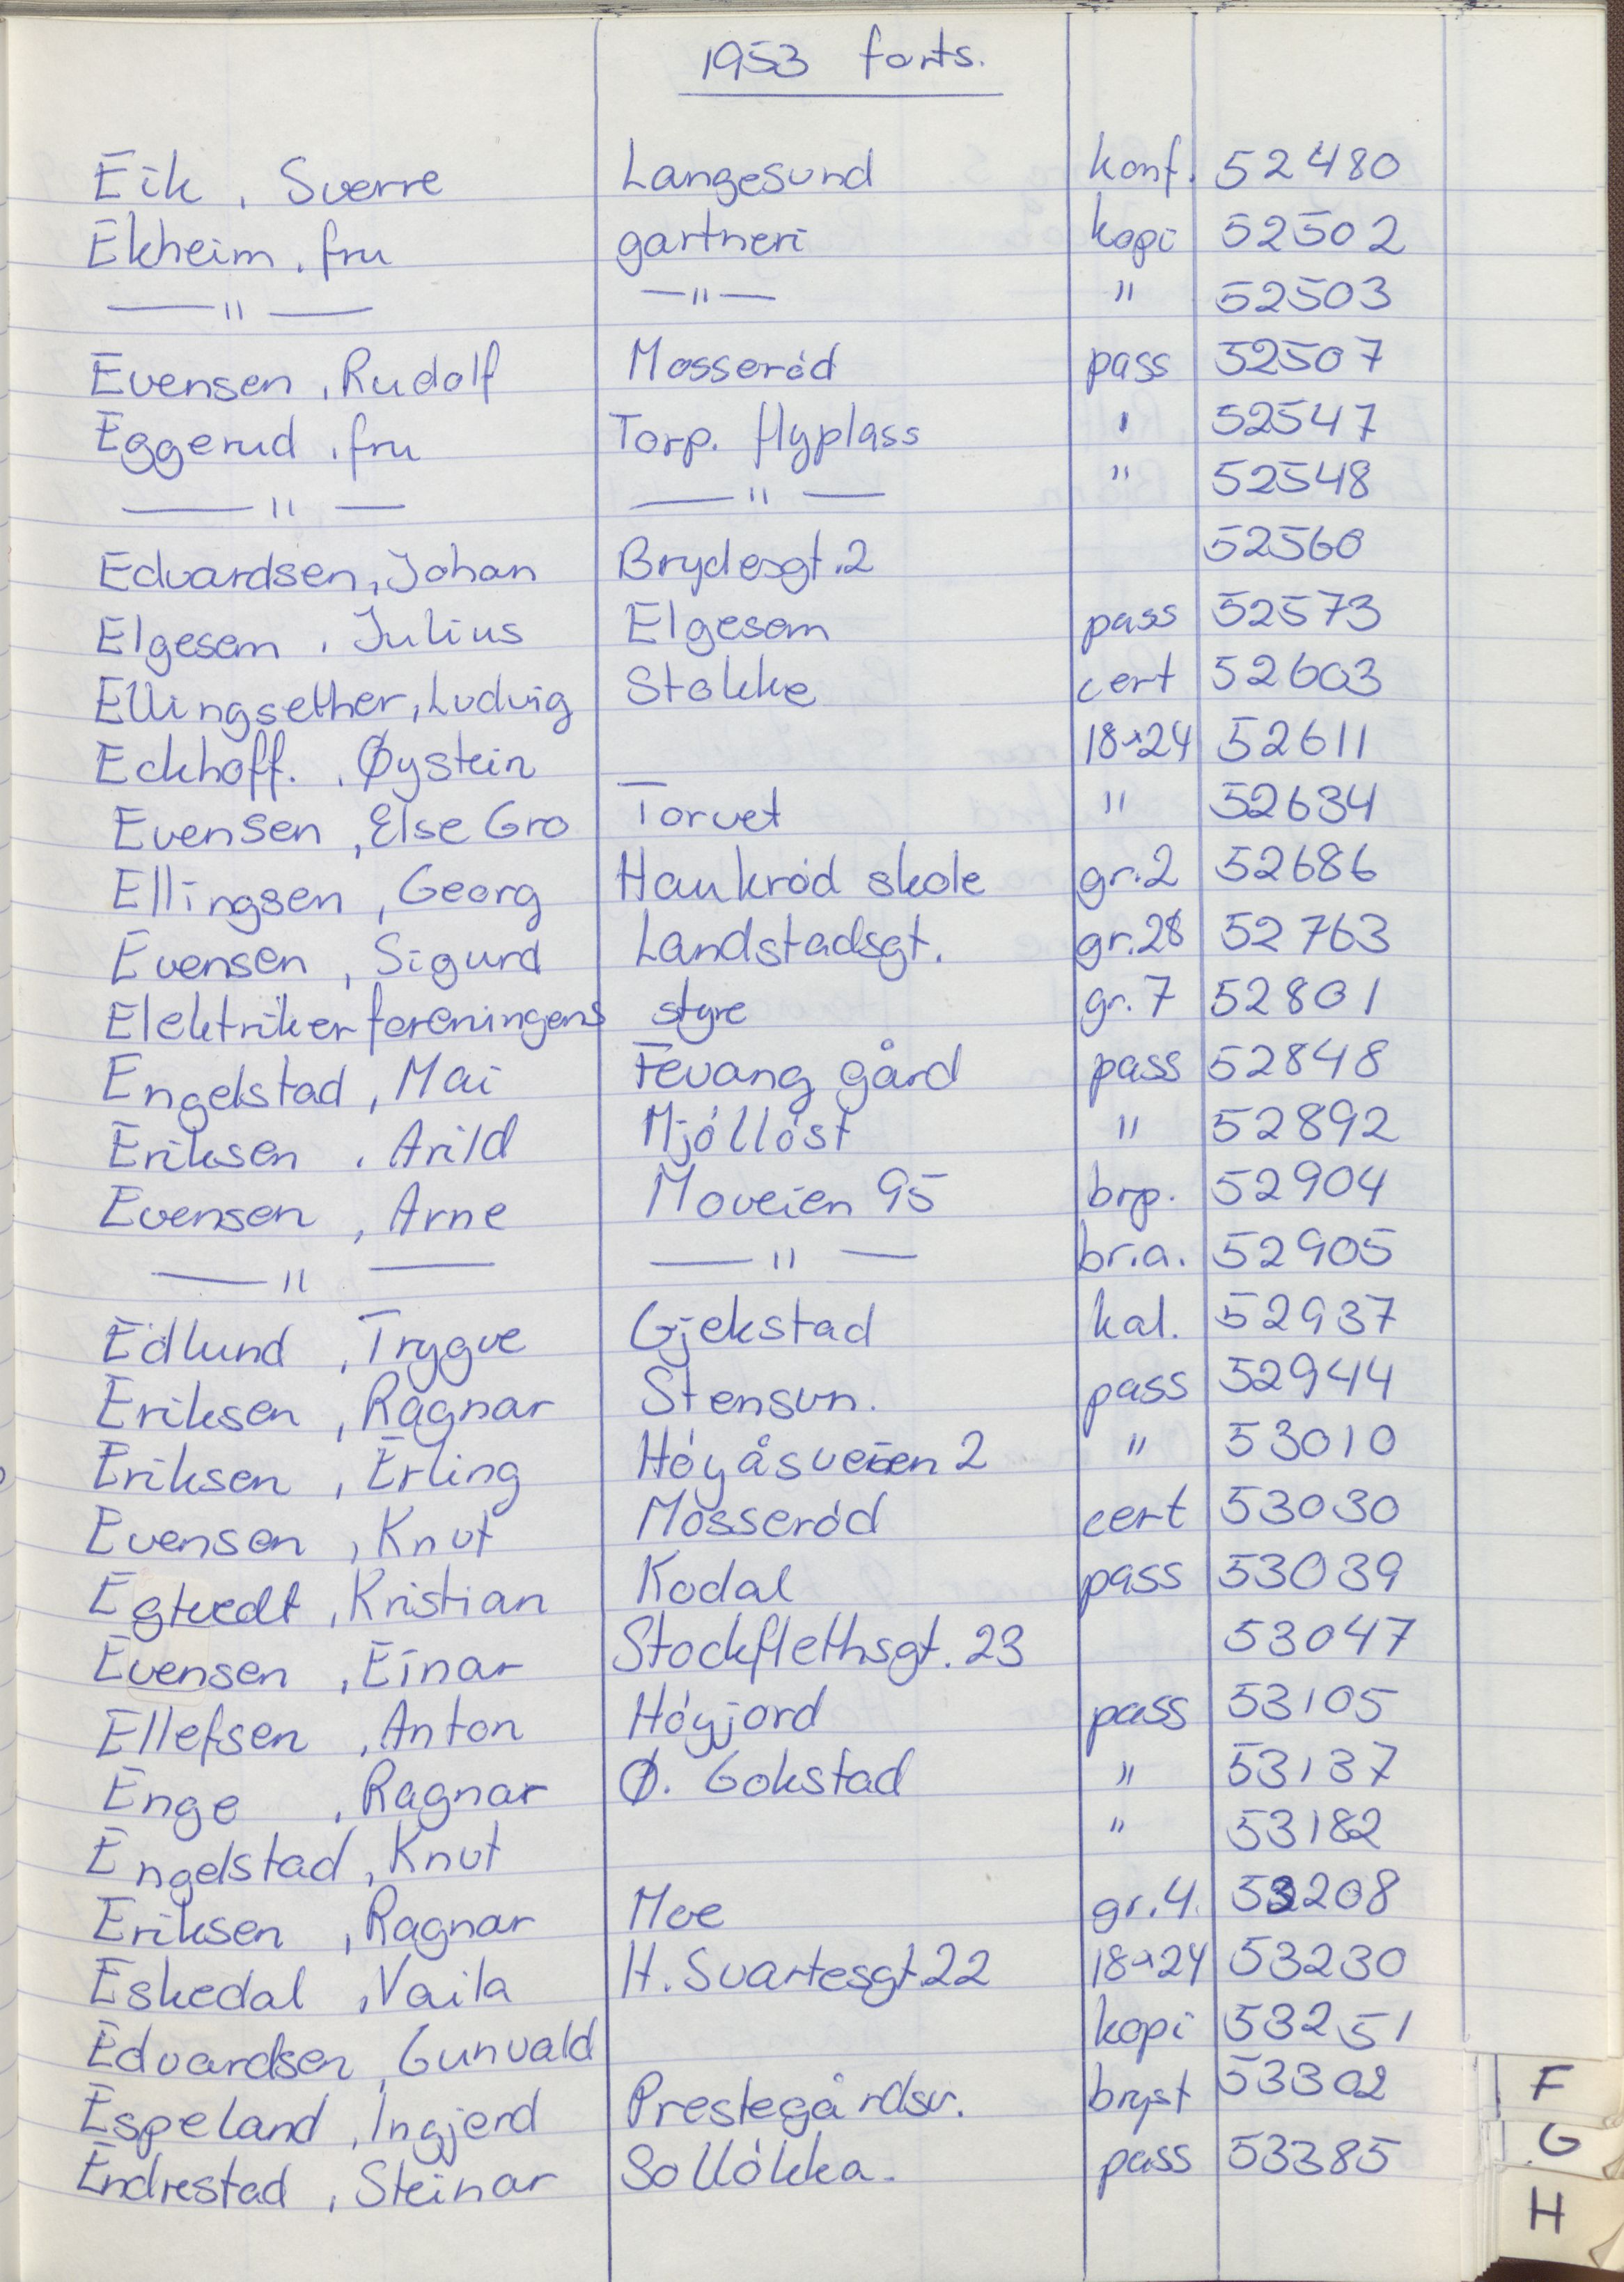 1953 forts.
Eik, Sverre Langesund konf. 52480
Ekheim, fru gartneri kopi 52502
—"— —"— " 52503
Evensen, Rudolf Mosserød pass 52507
Eggerud, fru Torp. flyplass " 52547
—"— —"— " 52548
Edvardsen, Johan Brydesgt. 2 52560
Elgesem, Julius Elgesem pass 52573
Ellingsether, Ludvig Stokke cert 52603
Eckhoff, Øystein 18x24 52611
Evensen, Else Gro Torvet " 52634
Ellingsen, Georg Haukrød skole gr. 2 52686
Evensen, Sigurd Landstadsgt. gr. 28 52763
Elektrikerforeningens styre gr. 7 52801
Engelstad, Mai Fevang gård pass 52848
Eriksen, Arild Mjølløst " 52892
Evensen, Arne Moveien 95 brp. 52904
—"— —"— br.a. 52905
Edlund, Trygve Gjekstad kal. 52937
Eriksen, Ragnar Stensvn. pass 52944
Eriksen, Erling Høyåsveien 2 " 53010
Evensen, Knut Mosserød cert 53030
Egtvedt, Kristian Kodal pass 53039
Evensen, Einar Stockflethsgt. 23 53047
Ellefsen, Anton Høyjord pass 53105
Enge, Ragnar Ø. Gokstad " 53137
Engelstad, Knut " 53182
Eriksen, Ragnar Moe gr. 4. 53208
Eskedal, Vaila H. Svartesgt. 22 18x24 53230
Edvardsen, Gunvald kopi 53251
Espeland, Ingjerd Prestegårdsv. bryst 53302
Endrestad, Steinar Solløkka. pass 53385
F
G
H